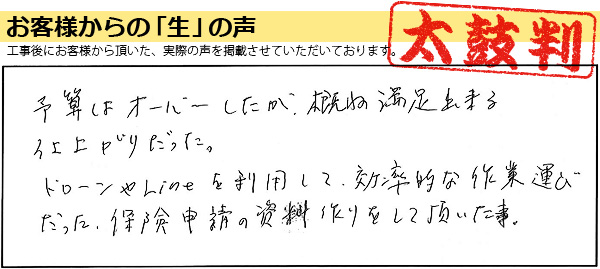 お客様からの「生」の声
太鼓判
工事後にお客様から頂いた、実際の声を掲載させていただいております。
予算はオーバーしたが、概ね満足出来る
仕上がりだった。
ドローンやLineを利用して、効率的な作業運び
だった、保険申請の資料作りをして頂いた事。